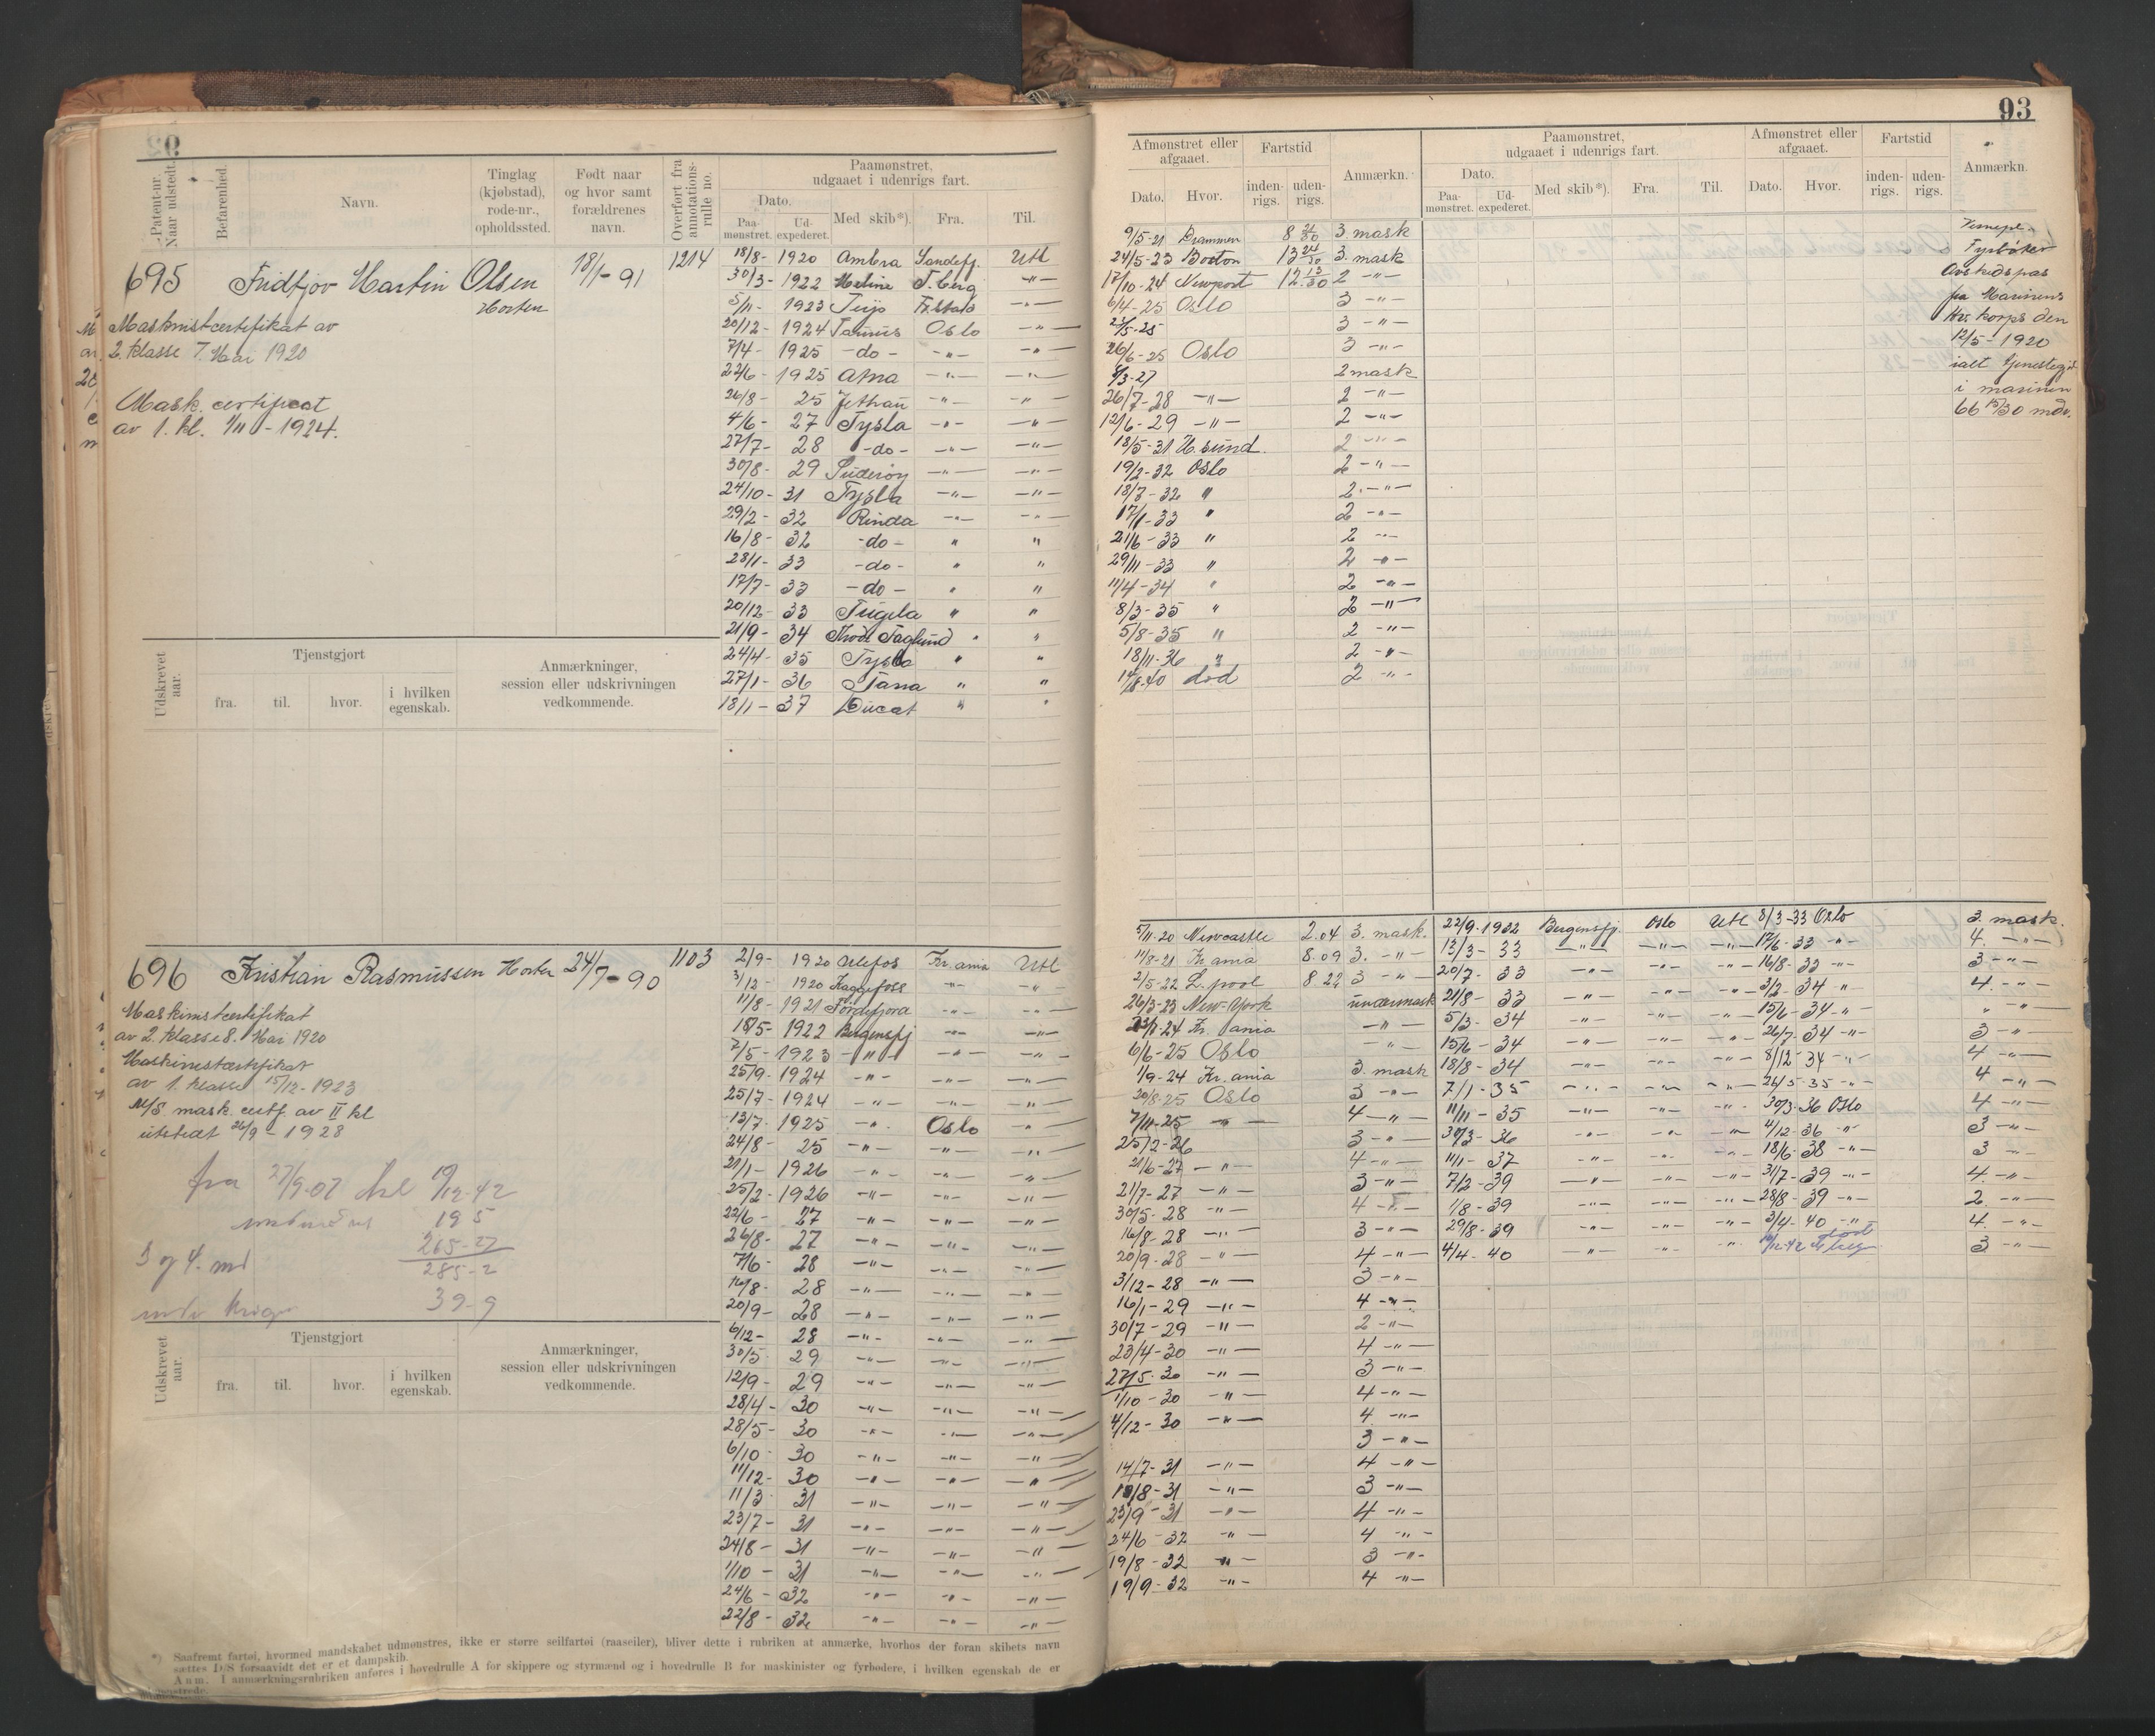 93
Patent-nr. Naar udstedt.
Befarenhed.
Navn.
Tinglag (kjøbstad), rode-nr., opholdssted.
Født naar og hvor samt forældrenes navn.
Overført fra annotations-rulle no.
Paamønstret, udgaaet i udenrigs fart.
Dato.
Paa-mønstret.
Ud-expederet.
Med skib*).
Fra.
Til.
Afmønstret eller afgaaet.
Dato.
Hvor.
Fartstid
inden-rigs.
uden-rigs.
Anmærkn.
Paamønstret, udgaaet i udenrigs fart.
Dato.
Paa-mønstret.
Ud-expederet.
Med skib*).
Fra.
Til.
Afmønstret eller afgaaet.
Dato.
Hvor.
Fartstid
inden-rigs.
uden-rigs.
Anmærkn.
695 Fridtjov Martin Olsen 18/1-91 1214
Horten
Maskinistcertifikat av
2. klasse 7. Mai 1920
Mask. certificat
av 1. kl. 1/11-1924.
18/8- 1920 Ambra Sandefj. Utl
30/3- 1922 Meline T.berg -"-
5/11- 1923 Teijo Fr.stad -"-
20/12- 1924 Taurus Oslo -"-
7/4- 1925 -do- -"- -"-
22/6- 1925 Atna -"- -"-
26/8- 25 -"- -"-
4/6- 27 Tysla -"- -"-
27/7- 28 -do- -"- -"-
30/8- 29 Suderøy -"- -"-
24/10- 31 Tysla -"- -"-
29/2- 32 Rinda -"- -"-
16/8- 32 -do- " "
28/1- 33 -do- " "
17/7- 33 -do- " "
20/12- 33 Tugela " "
21/9- 34 Thode Faglund " "
24/4- 35 Tysla " "
27/1- 36 Tana " "
18/1- 37 Ducat " "
9/5-21 Drammen 8 21/30 3. mask
24/5-23 Boston 13 24/30 3. mask
17/10-24 Newport 12 13/30 2 -"-
6/4-25 Oslo 3 -"-
23/5-25 3 -"-
26/6-25 Oslo 3 -"-
8/3-27 2 mask
26/7-28 -"- 2 -"-
12/6-29 -"- 2 -"-
18/5-31 H.sund. 2 -"-
19/2-32 Oslo 2 -"-
18/7-32 " 2 -"-
17/1-33 " 2 -"-
21/6-33 " 2 -"-
29/11-33 " 2 -"-
11/4-34 " 2 -"-
8/3-35 " 2 -"-
5/8-35 " 2 -"-
18/11-36 " 2 -"-
14/8-40 død 2 -"-
Fyrbøter
Avskedspas
fra Marinens
Hv. korps den
12/5-1920
ialt tjenestegj.
i marinen
66 15/30 mdr.
Udskrevet aar.
Tjenstgjort
fra.
til.
hvor.
i hvilken egenskab.
Anmærkninger, session eller udskrivningen vedkommende.
696 Kristian Rasmussen Horten 24/7-90 1103
Maskinistcertifikat
av 2. klasse 8. Mai 1920
Maskinistcertifikat
av 1. klasse 15/12-1923
M/S. mask. certf. av II kl
utstedt 26/9-1928
fra 27/9-07 til 19/12-42
195
265-27
3 og 4. md 285-2
39-9
2/9- 1920 Ulefos Kr.ania Utl
3/12- 1920 Kaggefoss -"- -"-
11/8- 1921 Fordefjord -"- -"-
18/5- 1922 Bergensfj -"- -"-
7/5- 1923 -"- -"- -"-
25/9- 1924 -"- -"- -"-
25/7- 1924 -"- -"- -"-
13/7- 1925 -"- Oslo -"-
24/8- 25 -"- -"- -"-
21/1- 1926 -"- -"- -"-
25/2- 1926 -"- -"- -"-
22/6- 27 -"- -"- -"-
26/8- 27 -"- -"- -"-
7/6- 28 -"- -"- -"-
16/8- 28 -"- -"- -"-
20/9- 28 -"- -"- -"-
6/12- 28 -"- -"- -"-
30/5- 29 -"- -"- -"-
12/9- 29 -"- -"- -"-
28/4- 30 -"- -"- -"-
28/5- 30 -"- -"- -"-
6/10- 30 -"- -"- -"-
11/12- 30 -"- -"- -"-
11/3- 31 -"- -"- -"-
23/7- 31 -"- -"- -"-
24/8- 31 -"- -"- -"-
1/10- 31 -"- -"- -"-
24/6- 32 -"- -"- -"-
22/8- 32 -"- -"- -"-
5/11-20 Newcastle 2.04 3. mask.
11/8-21 Kr.ania 8.09 3. -"-
2/5-22 L.pool 8 22 3 -"-
26/3-23 New-York undermask
23/1-24 Kr. ania -"-
6/6-25 Oslo -"-
1/9-24 Kr.ania 3. mask
20/8-25 Oslo 3 -"-
7/11-25 -"- 4 -"-
25/2-26 3 -"-
21/6-27 -"- 4 -"-
21/7-27 -"- 3 -"-
30/5-28 -"- 4 -"-
16/8-28 -"- 3 -"-
20/9-28 -"- 4 -"-
3/12-28 -"- 3 -"-
16/1-29 -"- 4 -"-
30/7-29 -"- 2 -"-
23/4-30 -"- 4 -"-
27/5-30 -"- 3 -"-
1/10-30 -"- 4 -"-
4/12-30 -"- 4 -"-
3 -"-
14/7-31 -"- 4 -"-
18/8-31 -"- 3 -"-
23/9-31 -"- 4 -"-
24/6-32 -"- 4 -"-
19/8-32 -"- 3 -"-
19/9-32 -"- 4 -"-
22/9-1932 Bergensfj. Oslo Utl 8/3-33 Oslo 3. mask.
13/3-33 -"- -"- -"- 17/6-33 -"- 4. -"-
20/7-33 -"- -"- -"- 16/8-33 -"- 3 -"-
21/8-33 -"- -"- -"- 3/2-34 -"- 4. -"-
5/3-34 -"- -"- -"- 15/6-34 -"- " -"-
15/6-34 -"- -"- -"- 26/7-34 -"- 3 -"-
18/8-34 -"- -"- -"- 8/12-34 -"- 4 -"-
7/1-35 -"- -"- -"- 26/5-35 -"- 4 -"-
11/11-35 -"- -"- -"- 30/3-36 Oslo 4 -"-
30/3-36 -"- -"- -"- 4/12-36 -"- 3 -"-
11/1-37 -"- -"- -"- 18/6-38 -"- 3 -"-
7/2-39 -"- -"- -"- 31/7-39 -"- 4. -"-
1/8-39 -"- -"- -"- 28/8-39 -"- 2. -"-
29/8-39 -"- -"- -"- 3/4-40 -"- 4. -"-
4/4-40 -"- -"- -"- 19/12-42 død 3 -"-
Udskrevet aar.
Tjenstgjort
fra.
til.
hvor.
i hvilken egenskab.
Anmærkninger, session eller udskrivningen vedkommende.
*) Saafremt fartøi, hvormed mandskabet udmønstres, ikke er større seilfartøi (raaseiler), bliver dette i rubriken at anmærke, hvorhos der foran skibets navn
sættes D/S forsaavidt det er et dampskib.
Anm. I anmærkningsrubriken anføres i hovedrulle A for skippere og styrmænd og i hovedrulle B for maskinister og fyrbødere, i hvilken egenskab de er